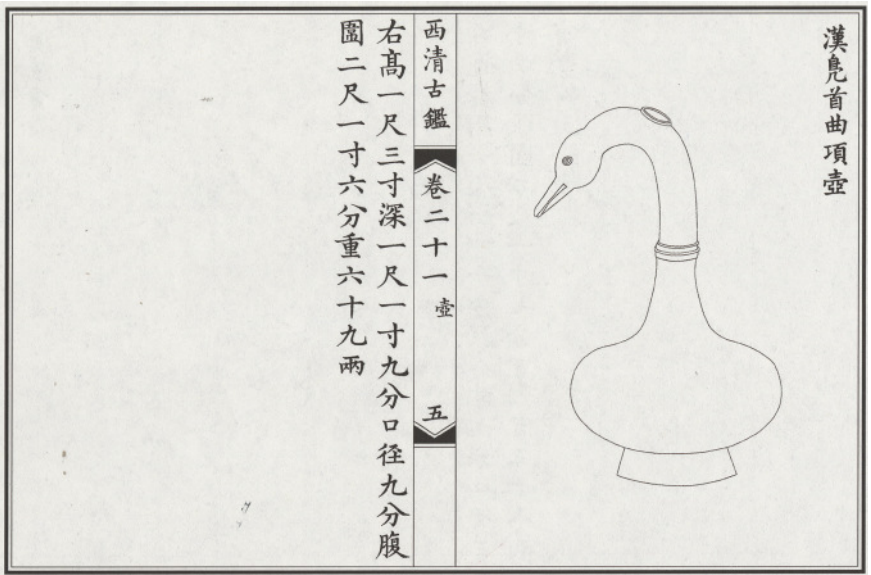 漢鳧首曲項壺
西清古鑑
卷二十一
壺
五
右高一尺三寸深一尺一寸九分口徑九分腹
圍二尺一寸六分重六十九兩